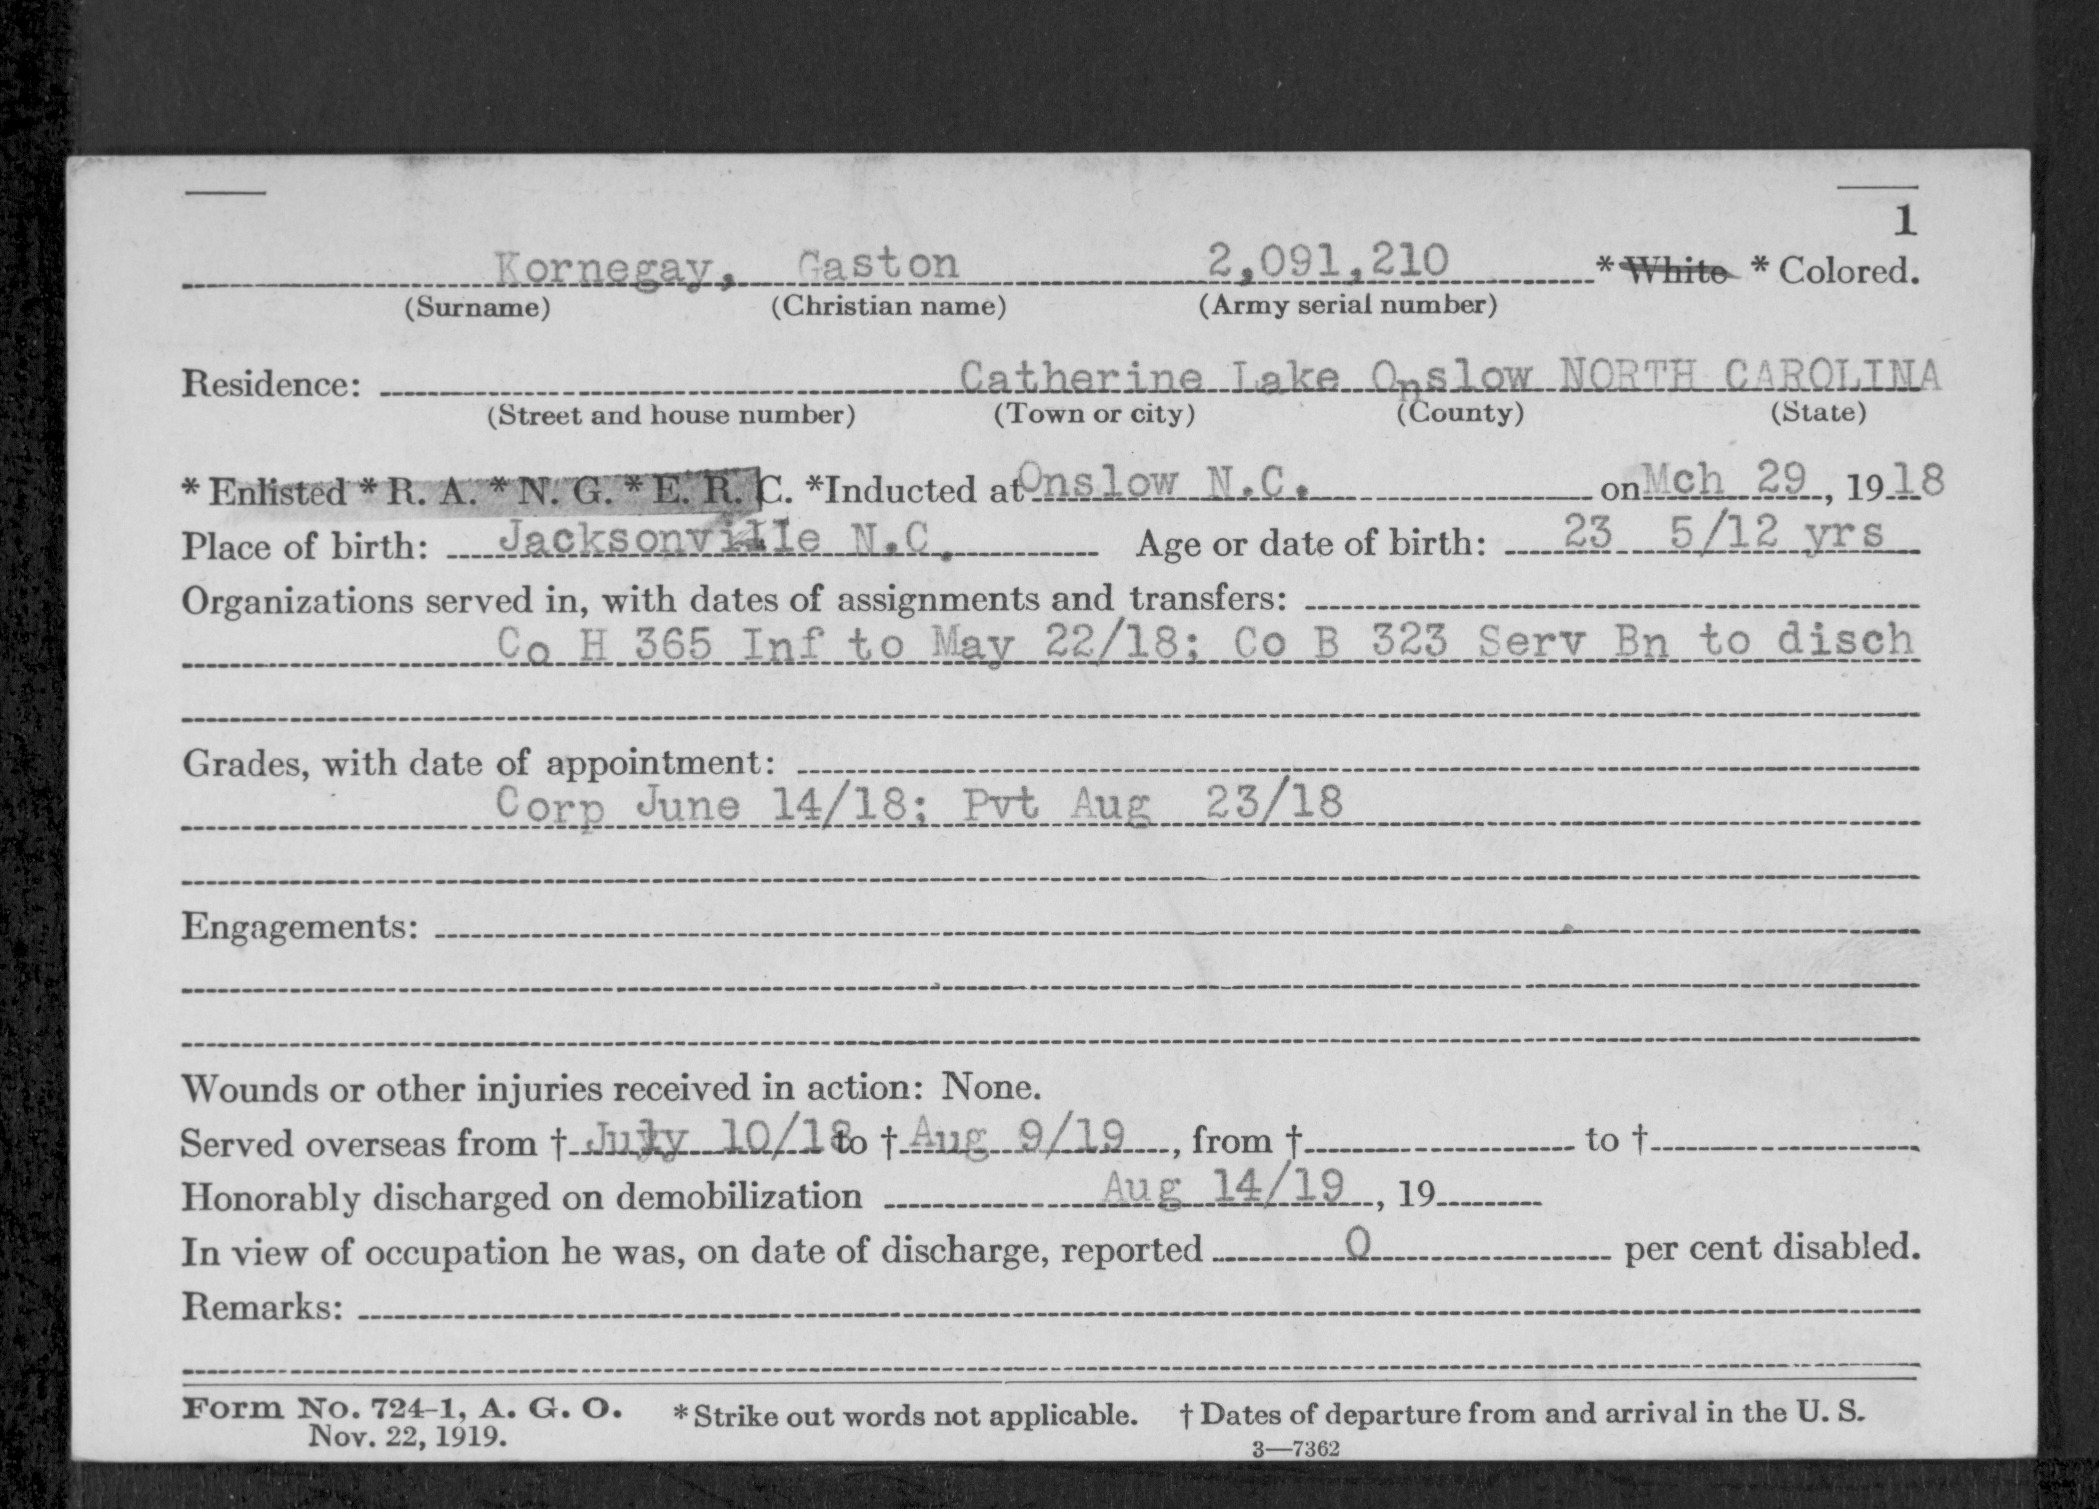 1
Kornegay, Gaston 2,091,210 * White * Colored.
(Surname) (Christian name) (Army serial number)
Residence: Catherine Lake Onslow NORTH CAROLINA
(Street and house number) (Town or city) (County) (State)
* Enlisted * R. A. * N. G. * E. R. C. *Inducted at Onslow N.C. on Mch 29, 1918
Place of birth: Jacksonville N.C. Age or date of birth: 23 5/12 yrs
Organizations served in, with dates of assignments and transfers:
Co H 365 Inf to May 22/18; Co B 323 Serv Bn to disch
Grades, with date of appointment:
Corp June 14/18; Pvt Aug 23/18
Engagements:
Wounds or other injuries received in action: None.
Served overseas from † July 10/18 to † Aug 9/19, from † to †
Honorably discharged on demobilization Aug 14/19, 19
In view of occupation he was, on date of discharge, reported 0 per cent disabled.
Remarks:
Form No. 724-1, A. G. O. * Strike out words not applicable. † Dates of departure from and arrival in the U. S.
Nov. 22, 1919.
3—7362